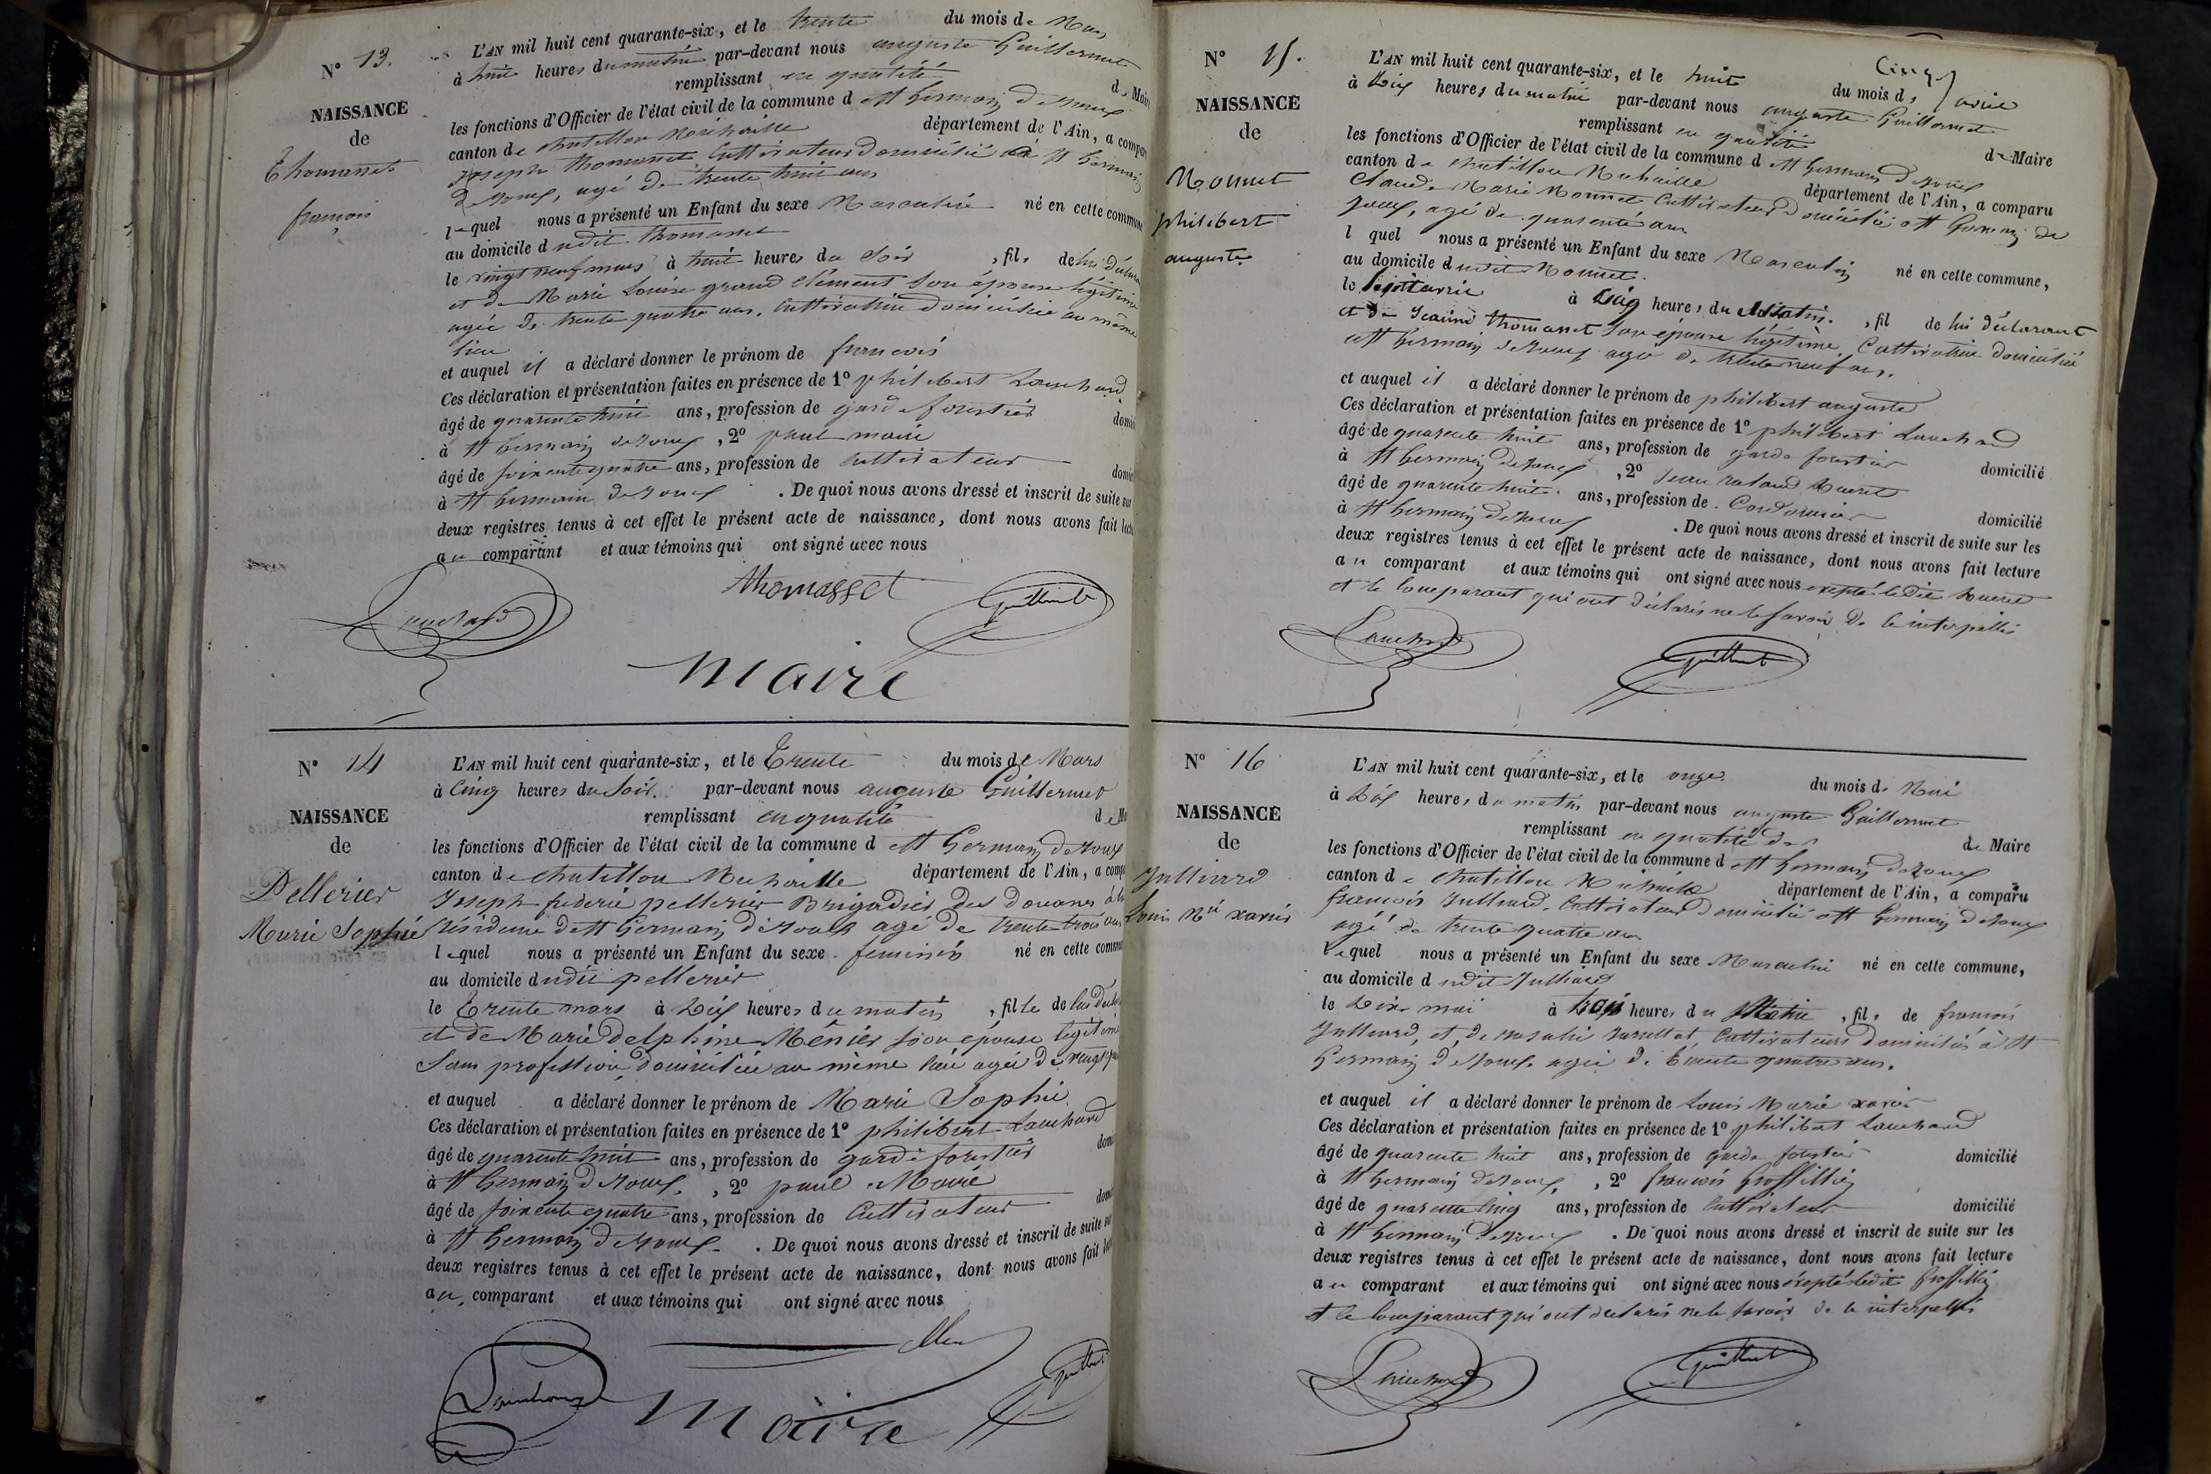 N° 13.
NAISSANCE
de
Thomasset
françois
L'AN mil huit cent quarante-six, et le trente du mois de Mars
à huit heures du matin par-devant nous auguste Guillermet
remplissant en qualité de Maire
les fonctions d'Officier de l'état civil de la commune d St Germain de Joux
canton de chatillon Michaille département de l'Ain, a compar
joseph thomasset, Cultivateur domicilié à St Germain
de Joux, agé de trente huit ans
lequel nous a présenté un Enfant du sexe Masculin né en cette commune
au domicile dudit thomasset
le vingt neuf mars à huit heures du Soir, fils de lui déclarant
et de Marie Louise grand clément Son épouse légitime
agée de trente quatre ans, Cultivatrice domiciliée au même
lieu
et auquel il a déclaré donner le prénom de françois
Ces déclaration et présentation faites en présence de 1° philibert Lauchard
âgé de quarente huit ans, profession de garde forestier domici
à St Germain de Joux, 2° paul maire
âgé de soixente quatre ans, profession de Cultivateur domici
à St Germain de Joux. De quoi nous avons dressé et inscrit de suite sur
deux registres tenus à cet effet le présent acte de naissance, dont nous avons fait lectu
au comparant et aux témoins qui ont signé avec nous
thomasset
Guillermet
maire
N° 14
NAISSANCE
de
Pellerier
Marie Sophie
L'AN mil huit cent quarante-six, et le Trente du mois de Mars
à Cinq heures du Soir. par-devant nous auguste Guillermet
remplissant en qualité de Ma
les fonctions d'Officier de l'état civil de la commune d St Germain de Joux
canton de chatillon Michaille département de l'Ain, a compa
Joseph frederic pellerier Brigadier des douanes à la
Résidence de St Germain de Joux agé de trente trois ans
lequel nous a présenté un Enfant du sexe feminin né en cette commu
au domicile dudit pellerier
le Trente mars à Dix heures du matin, fille de lui
et de Marie Delphine Ménier Son épouse légitime
Sans profession, domiciliée au même lieu agée de vingt
et auquel a déclaré donner le prénom de Marie Sophie
Ces déclaration et présentation faites en présence de 1° philibert Lauchard
âgé de quarente huit ans, profession de garde forestier domi
à St Germain de Joux, 2° paul Maire
âgé de soixente quatre ans, profession de Cultivateur domi
à St Germain de Joux. De quoi nous avons dressé et inscrit de suite sur
deux registres tenus à cet effet le présent acte de naissance, dont nous avons fait lec
au comparant et aux témoins qui ont signé avec nous
Guillermet
maire
Cinq
N° 15.
NAISSANCE
de
Monnet
philibert
auguste
L'AN mil huit cent quarante-six, et le huit du mois d'avril
à Dix heures du matin par-devant nous auguste Guillermet
remplissant en qualité de Maire
les fonctions d'Officier de l'état civil de la commune d St Germain de Joux
canton de chatillon Michaille département de l'Ain, a comparu
Claude Marie Monnet Cultivateur domicilié à St Germain de
Joux, agé de quarente ans
lquel nous a présenté un Enfant du sexe Masculin né en cette commune,
au domicile dudit Monnet.
le avril à Cinq heures du Matin., fil de lui déclarant
et de Jeanne thomasset Son épouse légitime, Cultivatrice domiciliée
à St Germain de Joux agée de trente neuf ans.
et auquel il a déclaré donner le prénom de philibert auguste
Ces déclaration et présentation faites en présence de 1° philibert Lauchard
âgé de quarente huit ans, profession de garde forestier domicilié
à St Germain de Joux, 2° Jean
âgé de quarente huit. ans, profession de Cordonnier domicilié
à St Germain de Joux. De quoi nous avons dressé et inscrit de suite sur les
deux registres tenus à cet effet le présent acte de naissance, dont nous avons fait lecture
au comparant et aux témoins qui ont signé avec nous excepté ledit
et le Comparant qui ont déclarés ne le savoir de ce interpellés
Lauchard
Guillermet
N° 16
NAISSANCE
de
Julliard
Louis Mie xavier
L'AN mil huit cent quarante-six, et le onze du mois de Mai
à Dix heures du matin par-devant nous auguste Guillermet
remplissant en qualité de Maire
les fonctions d'Officier de l'état civil de la commune d St Germain de Joux
canton de chatillon Michaille département de l'Ain, a comparu
françois Julliard, Cultivateur domicilié à St Germain de Joux
agé de trente quatre ans
lequel nous a présenté un Enfant du sexe Masculin né en cette commune,
au domicile dudit Julliard
le Dix mai à trois heures du Matin, fils de françois
Julliard, et de rosalie, Cultivateurs domiciliés à St
Germain de Joux, agée de trente quatre ans.
et auquel il a déclaré donner le prénom de Louis Marie xavier
Ces déclaration et présentation faites en présence de 1° philibert Lauchard
âgé de quarente huit ans, profession de garde forestier domicilié
à St Germain de Joux, 2° françois Grossilliex
âgé de quarente Cinq ans, profession de Cultivateur domicilié
à St Germain de Joux. De quoi nous avons dressé et inscrit de suite sur les
deux registres tenus à cet effet le présent acte de naissance, dont nous avons fait lecture
au comparant et aux témoins qui ont signé avec nous excepté ledit Grossilliex
et le Comparant qui ont déclarés ne le savoir de ce interpellés
Lauchard
Guillermet